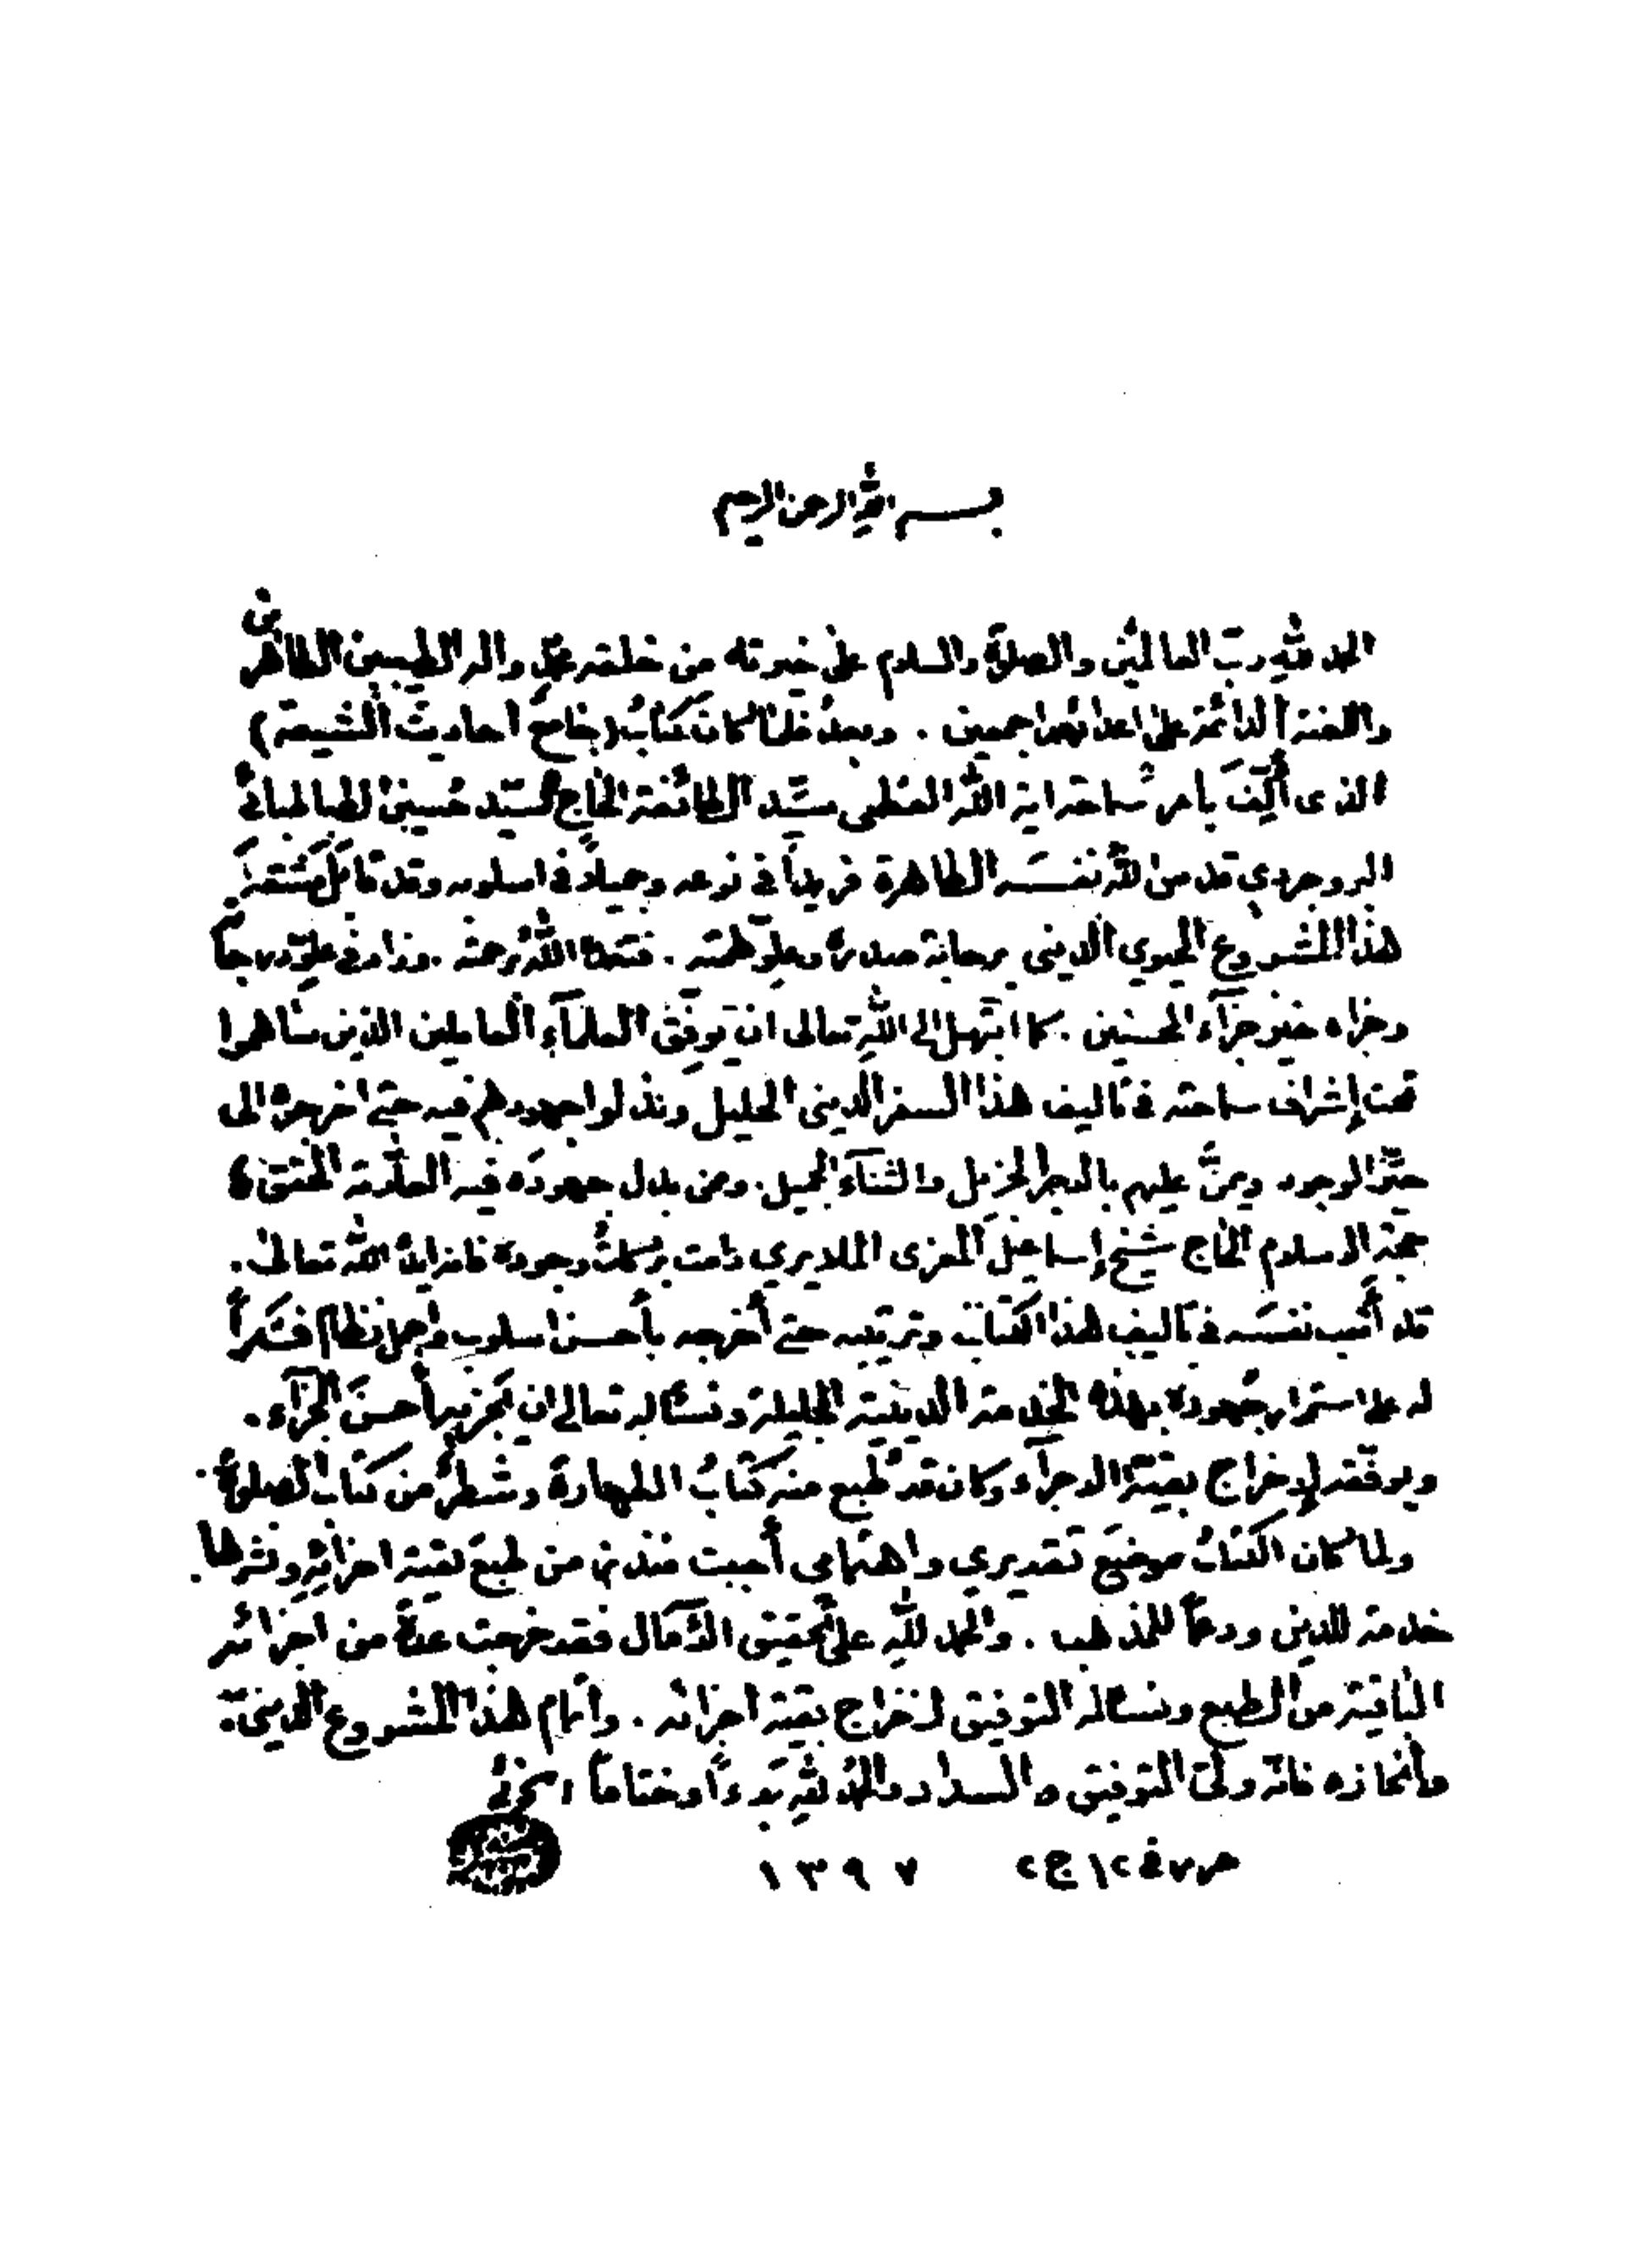 بسم الله الرحمن الرحيم
الحمد لله رب العالمين والصلاة والسلام على خيرته من خلقه محمد واله الطيبين الطاهرين
واللعنة الدائمة على اعدائهم اجمعين . وبعد فلما كان كتاب (جامع احاديث الشيعة)
الذى أُلِّفَ بامر سماحة اية الله العظمى سيّد الطائفة الحاج السيّد حسين الطباطبائي
البروجردي قدس الله نفسَه الطاهرة فريداً فى نوعه وجميلاً فى اسلوبه وقد
هذا المشروع الحيوي الديني برحابة صدره وعلوّ همّته . فتغمده الله برحمته . وزاد في علوّ درجاته
وجزاه خير جزآء المحسنين . كما ابتهل الى الله تعالى ان يوفّق العلمآء العاملين الذين ساهموا
تحت إشراف سماحته فى تاليف هذا السفر الديني الجليل وبذلوا جهودهم فيه حتى اخرجوه الى
حيّز الوجود ويمنَّ عليهم بالاجر الجزيل والثنآء الجميل . وممن بذل جهودَه فيه العلّامة المحقق
حجة الاسلام الحاج شيخ إسماعيل المعزى الملايري دامت بركات وجوده فانه ايده الله تعالى .
قد أتعب نفسَه فى تاليف هذا الكتاب وترتيبه حتى أخرجه بأحسن اسلوب واجمل نظام فشكراً
له على استمرار جهوده بهذه الخدمة الدينية الجليلة ونساله تعالى ان يجزيه أحسنَ الجزآء .
ويوفقه لإخراج بقيّة الاجزآء وكان قد طُبع منه كتابُ الطهارة وشطرٌ من كتاب الصلوة .
ولما كان الكتابُ موضعَ تقديري واهتمامى أحببت منذ زمن طبعَ بقية اجزائه ونشرها .
خدمة للدين ودعماً للمذهب . والحمد للهِ على تحقيق الآمال فقد خرجت عدة من اجزائه
الباقية من الطبع ونساله التوفيق لاخراج بقية اجزائه . واتمام هذا المشروع الديني .
وانجازه فانه وليّ التوفيق والسداد والحمد لله بدءاً وختاماً
حرر فى ١٢ ج ٢ ١٣٩٧